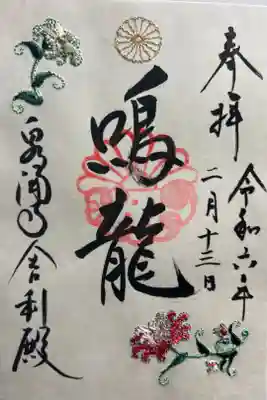 奉拝
令和六年
二月十三日
鳴龍
泉涌寺舎利殿